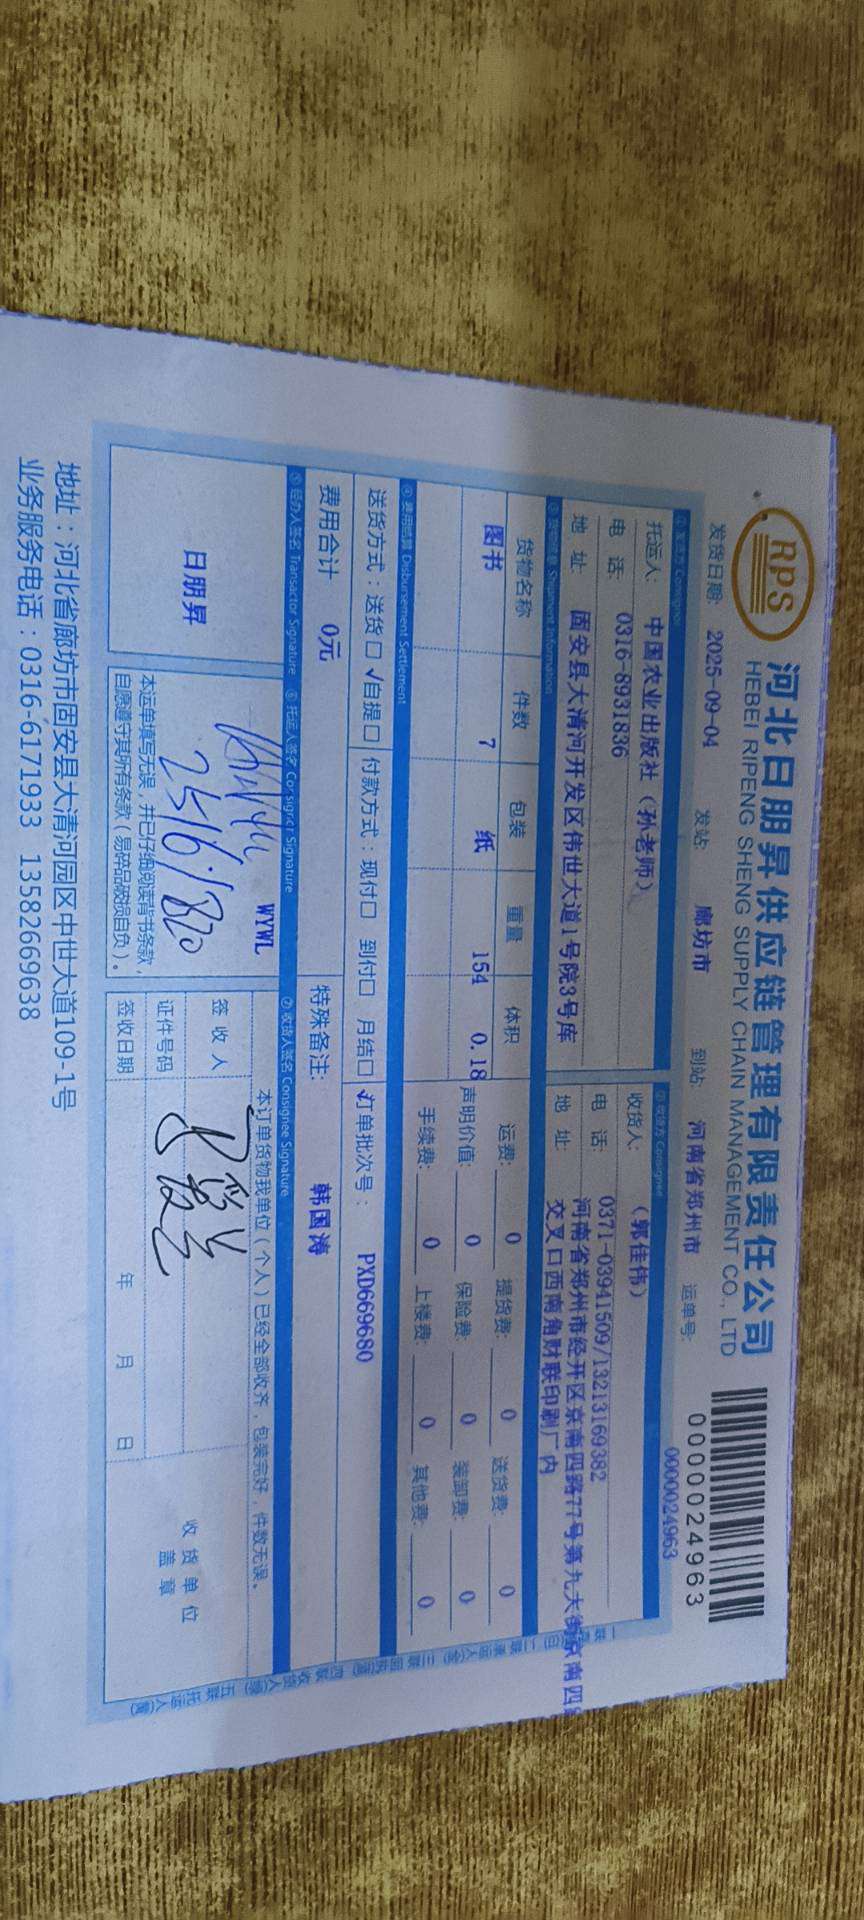 RPS
河北日朋昇供应链管理有限责任公司
HEBEI RIPENG SHENG SUPPLY CHAIN MANAGEMENT CO., LTD
0000024963
0000024963
发货日期: 2025-09-04 发站: 廊坊市 到站: 河南省郑州市 运单号:
① 发货方 Consignor
② 收货方 Consignee
托运人: 中国农业出版社（孙老师）
收货人: （郭佳伟）
电 话: 0316-8931836
电 话: 0371-03941509/13213169382
地 址: 固安县大清河开发区伟世大道1号院3号库
地 址: 河南省郑州市经开区京南四路77号第九大街京南四
交叉口西南角财联印刷厂内
③ 货物信息 Shipment Information
货物名称 件数 包装 重量 体积
图书 7 纸 154 0.18
运费: 0 提货费: 0 送货费: 0
声明价值: 0 保险费: 0 装卸费: 0
手续费: 0 上楼费: 0 其他费: 0
④ 费用结算 Disbursement Settlement
送货方式：送货□ √自提□ 付款方式：现付□ 到付□ 月结□ √订单批次号： PXD669680
费用合计 0元 特殊备注: 韩国涛
⑤ 经办人签名 Transactor Signature ⑥ 托运人签名 Consignor Signature ⑦ 收货人签名 Consignee Signature
日朋昇
WYWL
本运单填写无误，并已仔细阅读背书条款，
自愿遵守其所有条款（易碎品破损自负）。
本订单货物我单位（个人）已经全部收齐，包装完好，件数无误。
签 收 人
证件号码
签收日期 年 月 日
收 货 单 位
盖 章
地址：河北省廊坊市固安县大清河园区中世大道109-1号
业务服务电话：0316-6171933 13582669638